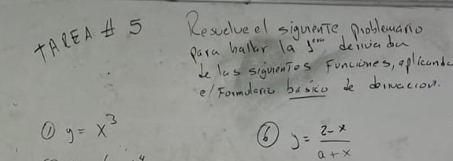 TAREA # 5
Resuelve el siguiente problemario
para hallar la 1era derivada
de las siguientes funciones, aplicando
el formulario básico de derivacion.
① y = x³
⑥ y = 2-x / a+x